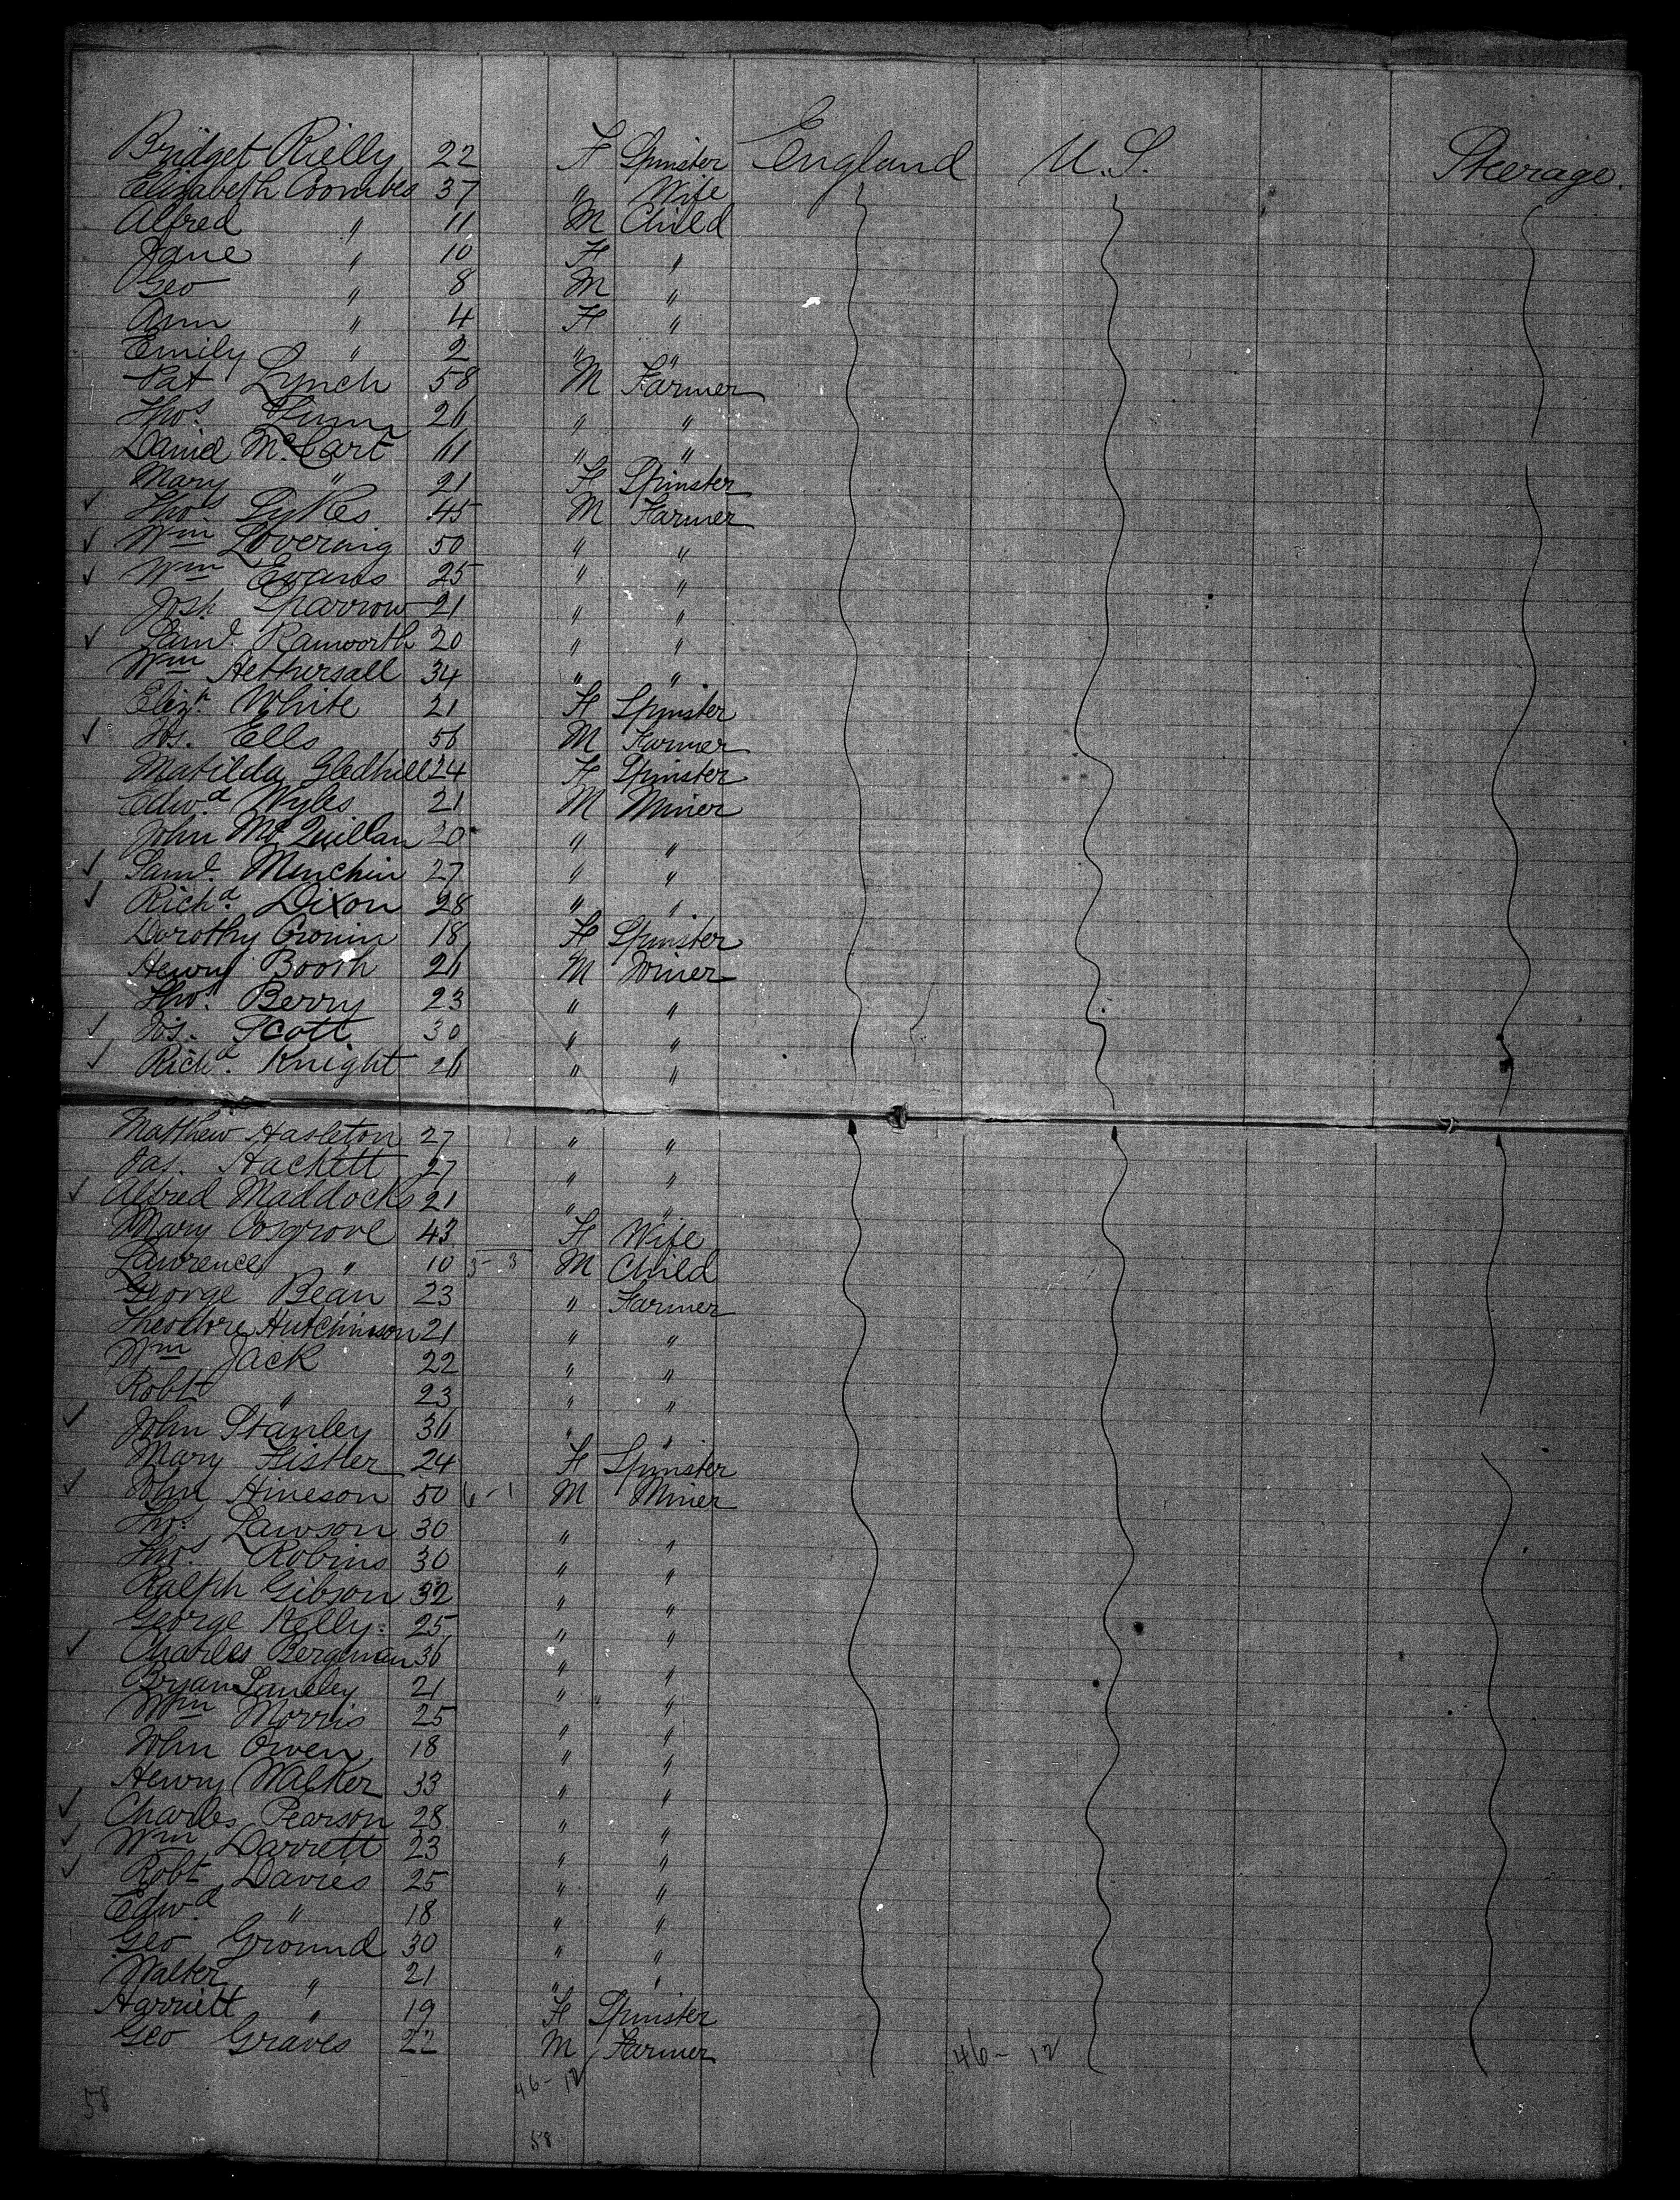 Bridget Rielly 22 F Spinster England U.S. Steerage.
Elizabeth Coombes 37 " Wife
Alfred " 11 M Child
Jane " 10 F "
Geo " 8 M "
Ann " 4 F "
Emily " 2 " "
Pat Lynch 58 M Farmer
Thos. 26 " "
David McCart 61 " "
Mary " 21 F Spinster
Thos Sykes 45 M Farmer
Wm Lovering 50 " "
Wm Evans 25 " "
Josh Sparrow 21 " "
Saml. Ramworth 20 " "
Wm Hethersall 34 " "
Elizh. White 21 F Spinster
Jos. Ells 56 M Farmer
Matilda Gledhill 24 F Spinster
Edwd. Wyles 21 M Miner
John Mc Quillan 20 " "
Saml. Minchin 27 " "
Richd. Dixon 28 " "
Dorothy Cronin 18 F Spinster
Henry Booth 26 M Joiner
Thos. Berry 23 " "
Jos. Scott 30 " "
Richd. Knight 26 " "
Matthew Hasleton 27 " "
Jas. Hackett 27 " "
Alfred Maddocks 21 " "
Mary Cosgrove 43 F Wife
Lawrence " 10 5-3 M Child
George Bean 23 " Farmer
Theodore Hutchinson 21 " "
Wm Jack 22 " "
Robt " 23 " "
John Stanley 36 " "
Mary Fistler 24 F Spinster
John Hineson 50 6-1 M Miner
Thos. Lawson 30 " "
Thos. Robins 30 " "
Ralph Gibson 32 " "
George Kelly 25 " "
Charles Bergman 36 " "
Bryan Langley 21 " "
Wm Morris 25 " "
John Owen 18 " "
Henry Walker 33 " "
Charles Pearson 28 " "
Wm Darrett 23 " "
Robt Davies 25 " "
Edwd. " 18 " "
Geo Ground 30 " "
Walter " 21 " "
Harriett " 19 F Spinster
Geo Graves 22 M Farmer
46-12 46-12
58
58